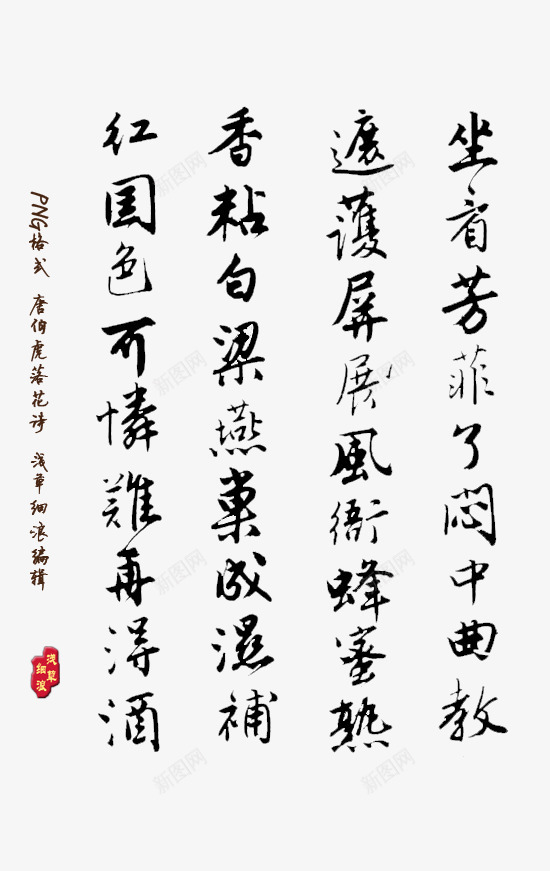 坐看芳菲了闷中曲教
遮護屏展風衙蜂蜜熟
香粘白梁燕巢成濕補
红国色可憐難再得酒
PNG格式 唐伯虎落花诗 浅草细浪编辑
浅草细浪
新图网